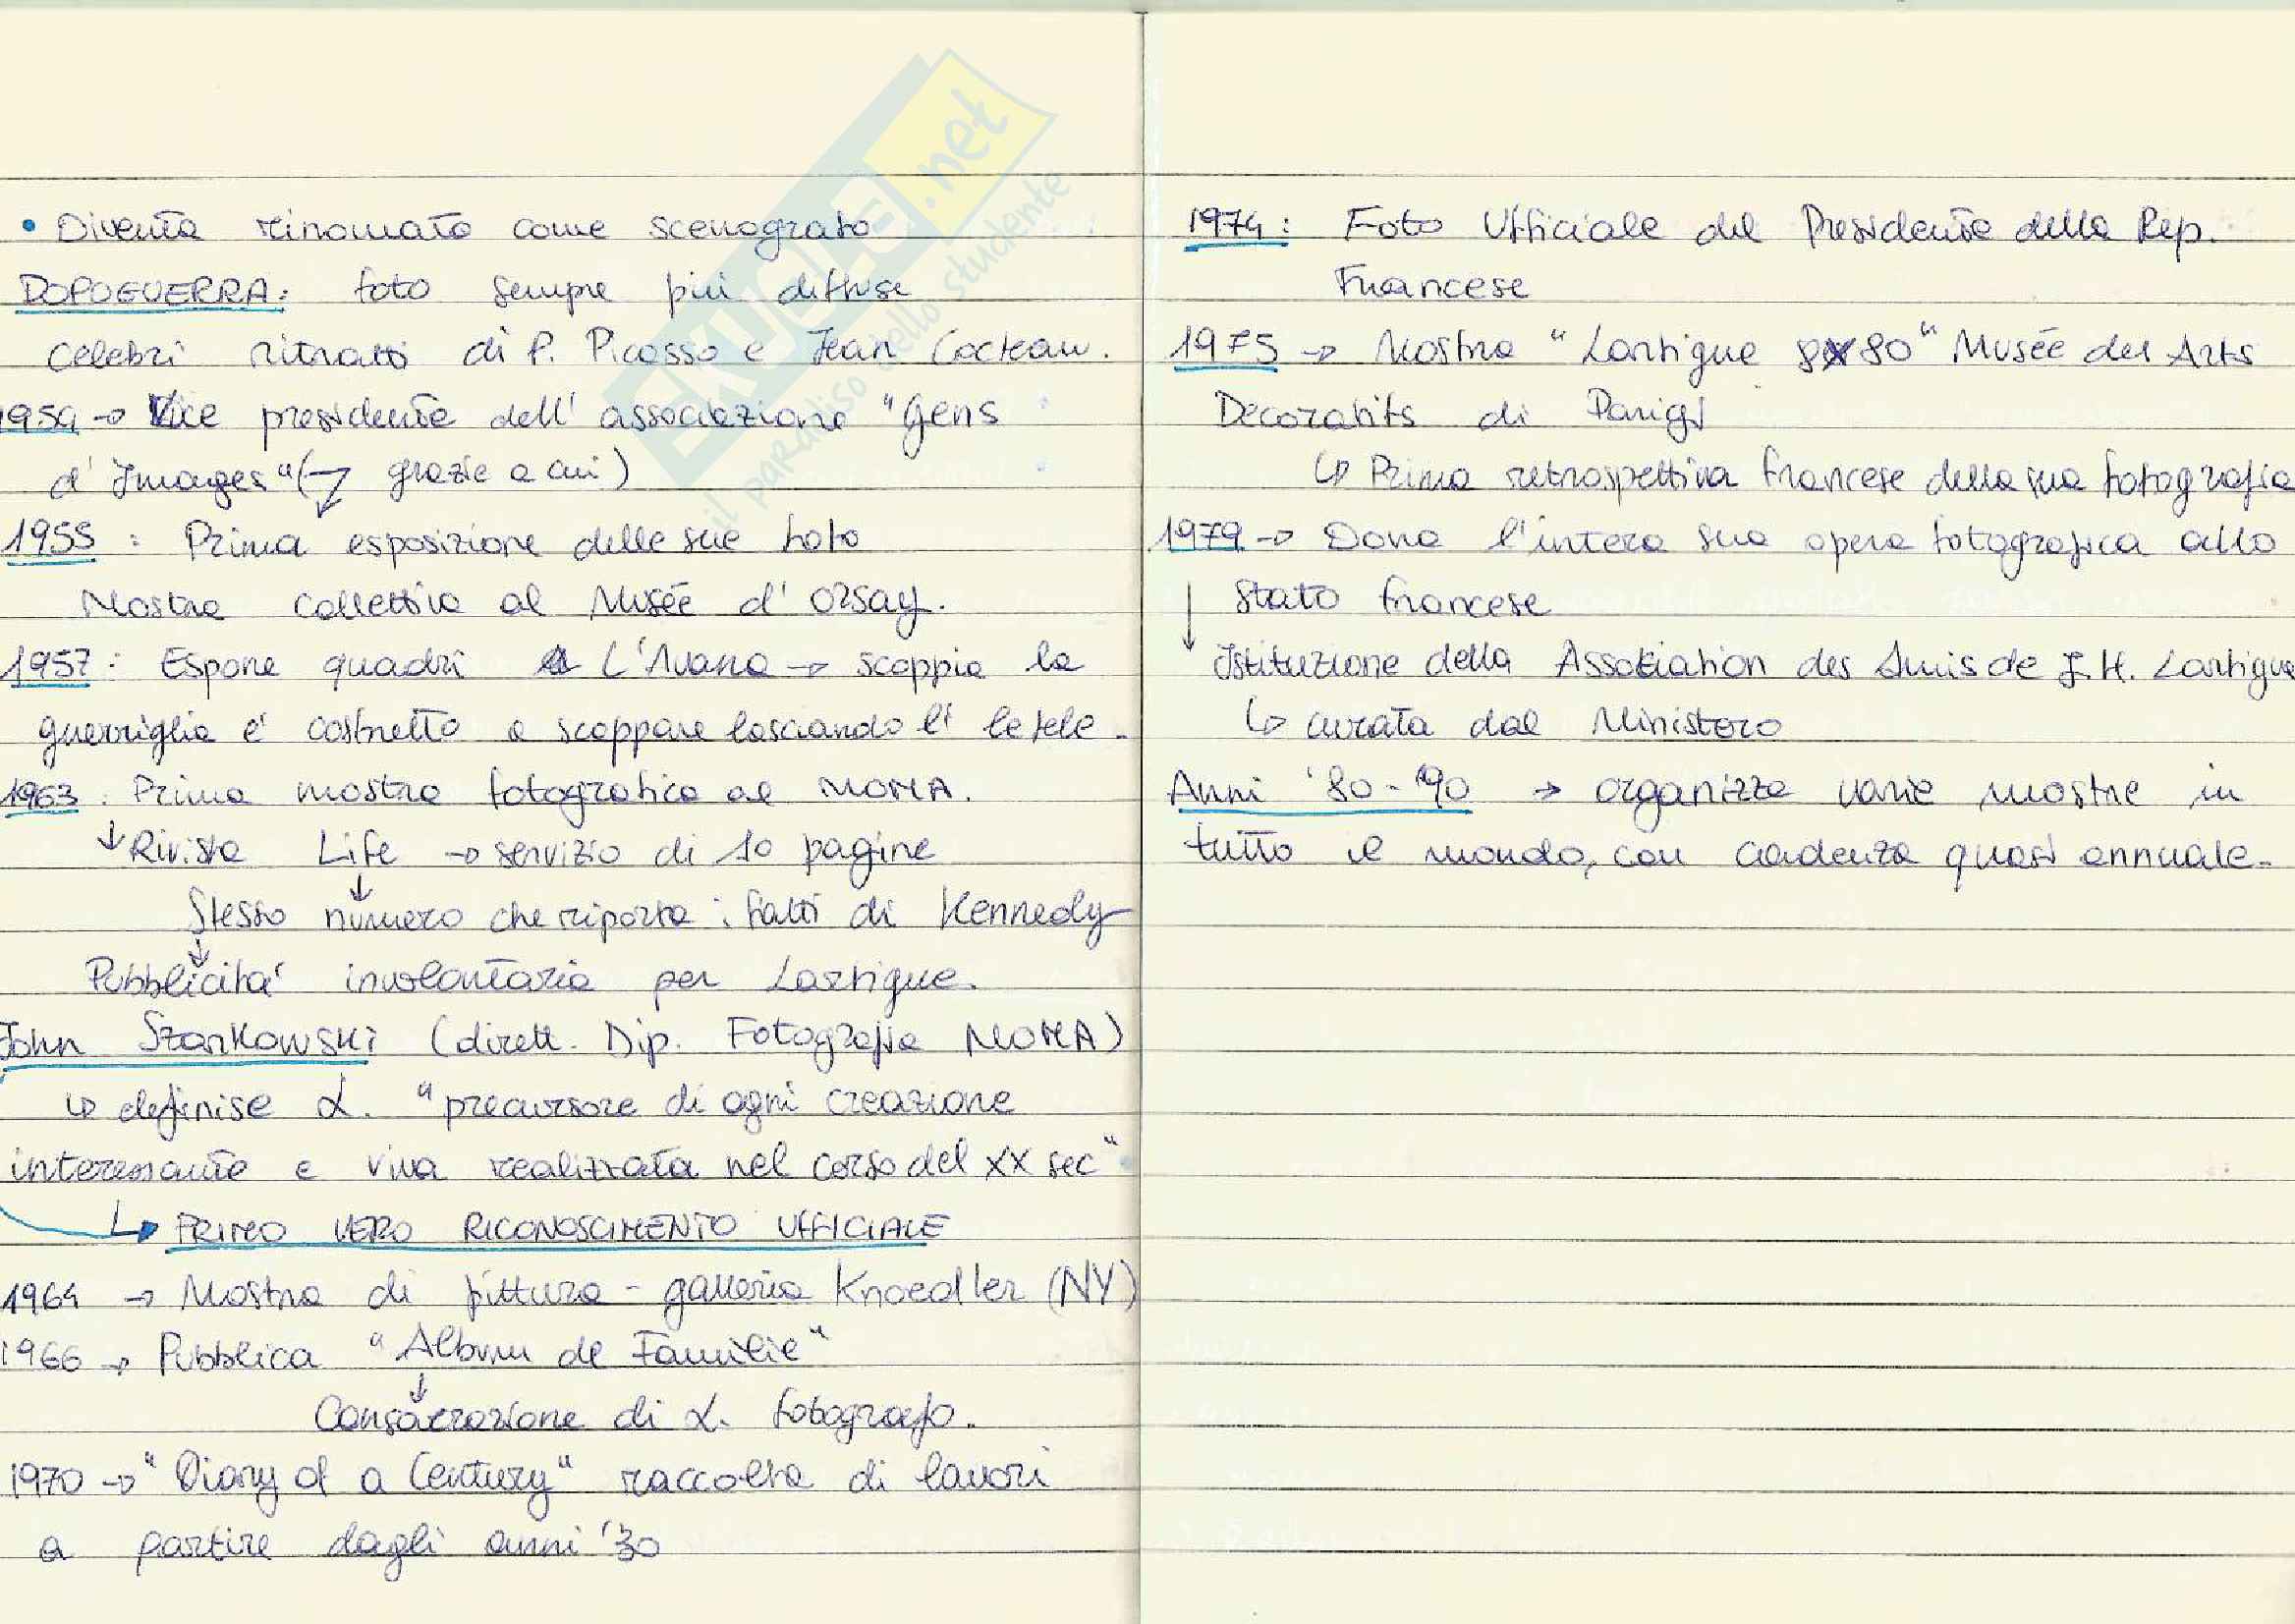 • Diventa rinomato come scenografo
DOPOGUERRA: foto sempre più diffuse
celebri ritratti di P. Picasso e Jean Cocteau.
1954 → Vice presidente dell' associazione "Gens
d' Images" (→ grazie a cui)
1955 : Prima esposizione delle sue foto
Mostra collettiva al Musée d' Orsay.
1957 : Espone quadri a L'Avana → scoppia la
guerriglia e' costretto a scappare lasciando lì le tele.
1963 : Prima mostra fotografica al MOMA.
↓ Rivista Life → servizio di 10 pagine
↓
Stesso numero che riporta i fatti di Kennedy
↓
Pubblicita' involontaria per Lartigue.
John Szarkowski (dirett. Dip. Fotografia MOMA)
↳ definise L. "precursore di ogni creazione
interessante e viva realizzata nel corso del XX sec"
↳ PRIMO VERO RICONOSCIMENTO UFFICIALE
1964 → Mostra di pittura - galleria Knoedler (NY)
1966 → Pubblica "Album de Familie"
↓
Consacrazione di L. fotografo.
1970 → "Diary of a Century" raccolta di lavori
a partire dagli anni '30
1974 : Foto Ufficiale del Presidente della Rep.
Francese
1975 → Mostra "Lartigue 8x80" Musée des Arts
Decoratifs di Parigi
↳ Prima retrospettiva francese della sua fotografia
1979 → Dona l'intera sua opera fotografica allo
Stato francese
↓ Istituzione della Association des Amis de J. H. Lartigue
↳ curata dal Ministero
Anni '80 - '90 → organizza varie mostre in
tutto il mondo, con cadenza quasi annuale.
SKUOLA.net
il paradiso dello studente